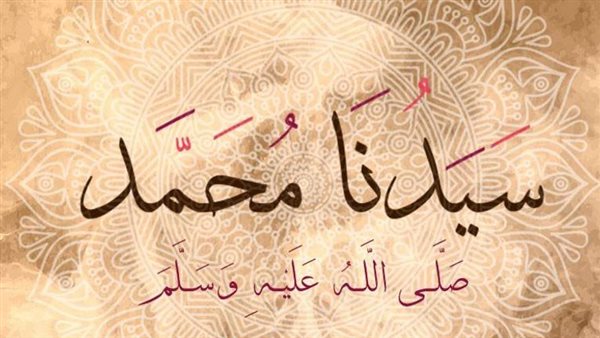 سَيَدُنَا مُحَمَّدَ
صَلَّى اللَّهُ عَلَيْهِ وَسَلَّمَ